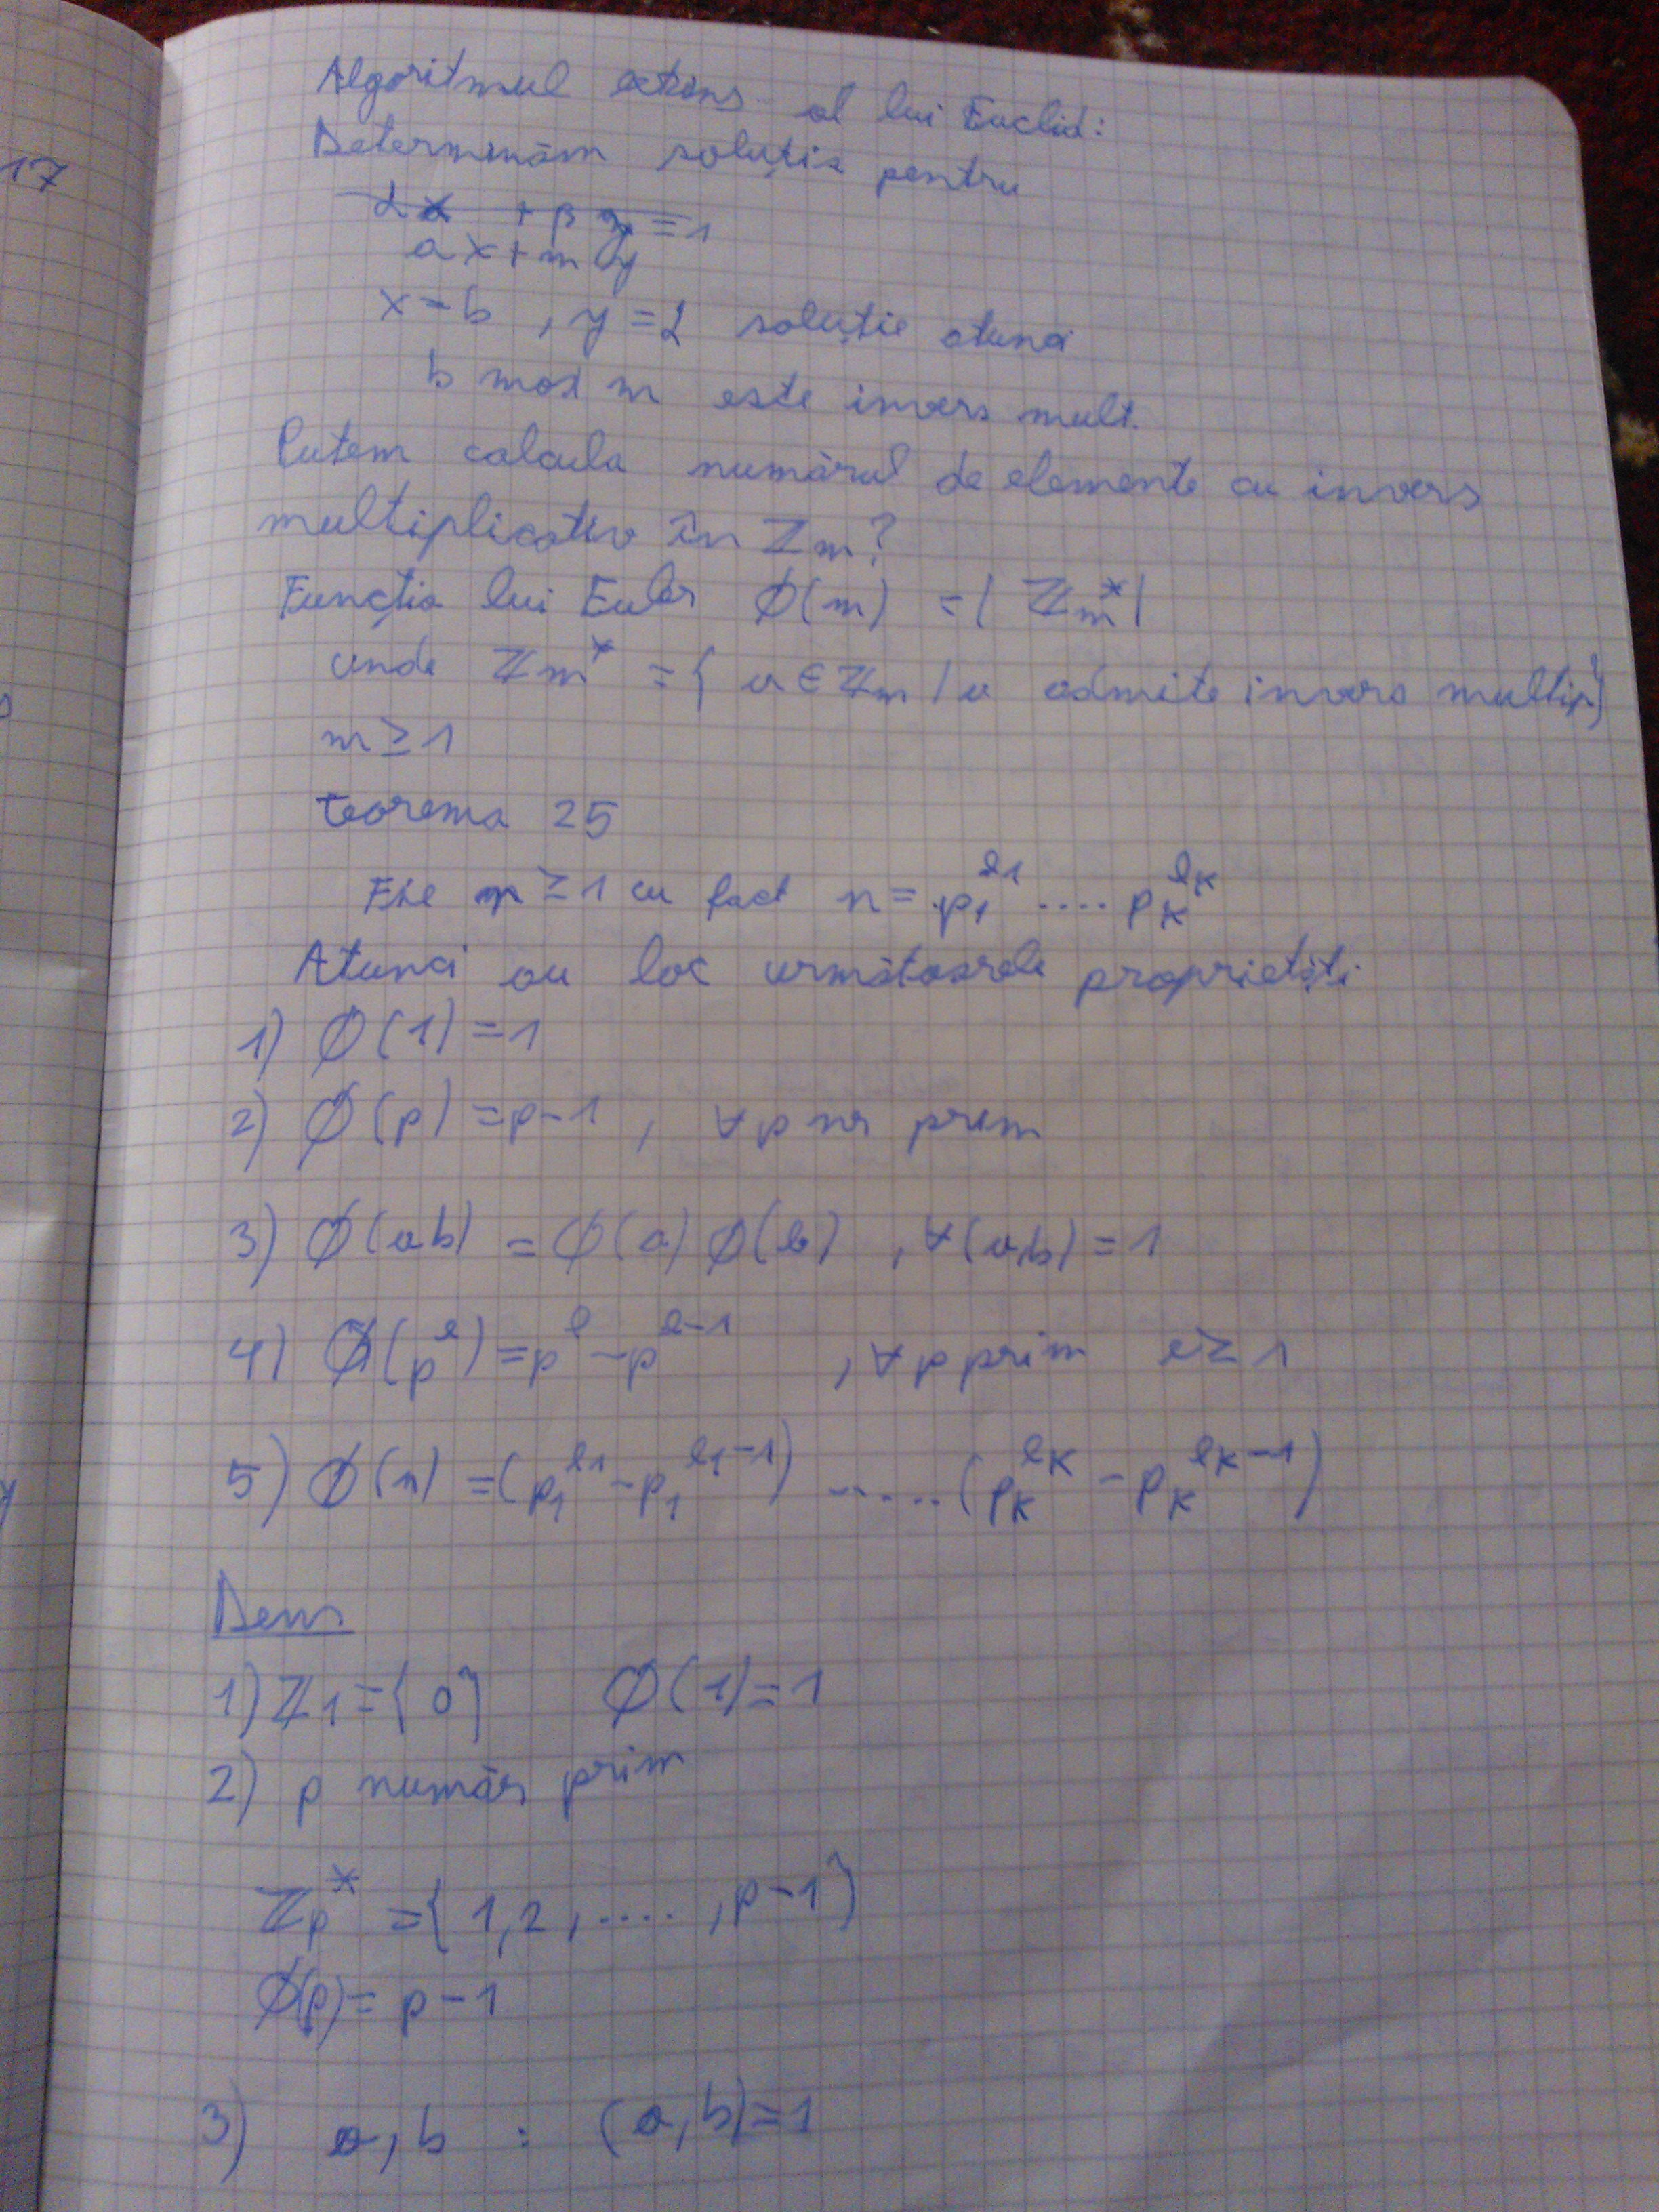 17
Algoritmul extins al lui Euclid:
Determinăm soluția pentru
αx + βy = 1
ax + my
x = b , y = α soluție atunci
b mod m este invers mult.
Putem calcula numărul de elemente cu invers
multiplicativ în ℤm?
Funcția lui Euler ∅(m) = |ℤm*|
unde ℤm* = { a ∈ ℤm / a admite invers multip}
m ≥ 1
teorema 25
Fie n ≥ 1 cu fact n = p₁^e1 .... pₖ^ek
Atunci au loc următoarele proprietăți
1) ∅(1) = 1
2) ∅(p) = p-1 , ∀ p nr prim
3) ∅(ab) = ∅(a) ∅(b) , ∀ (a,b) = 1
4) ∅(p^e) = p^e - p^(e-1) , ∀ p prim e ≥ 1
5) ∅(n) = (p₁^e1 - p₁^(e1-1)) ...... (pₖ^ek - pₖ^(ek-1))
Dem.
1) ℤ1 = {0} ∅(1) = 1
2) p număr prim
ℤp* = {1,2,....,p-1}
∅(p) = p-1
3) a, b : (a,b) = 1